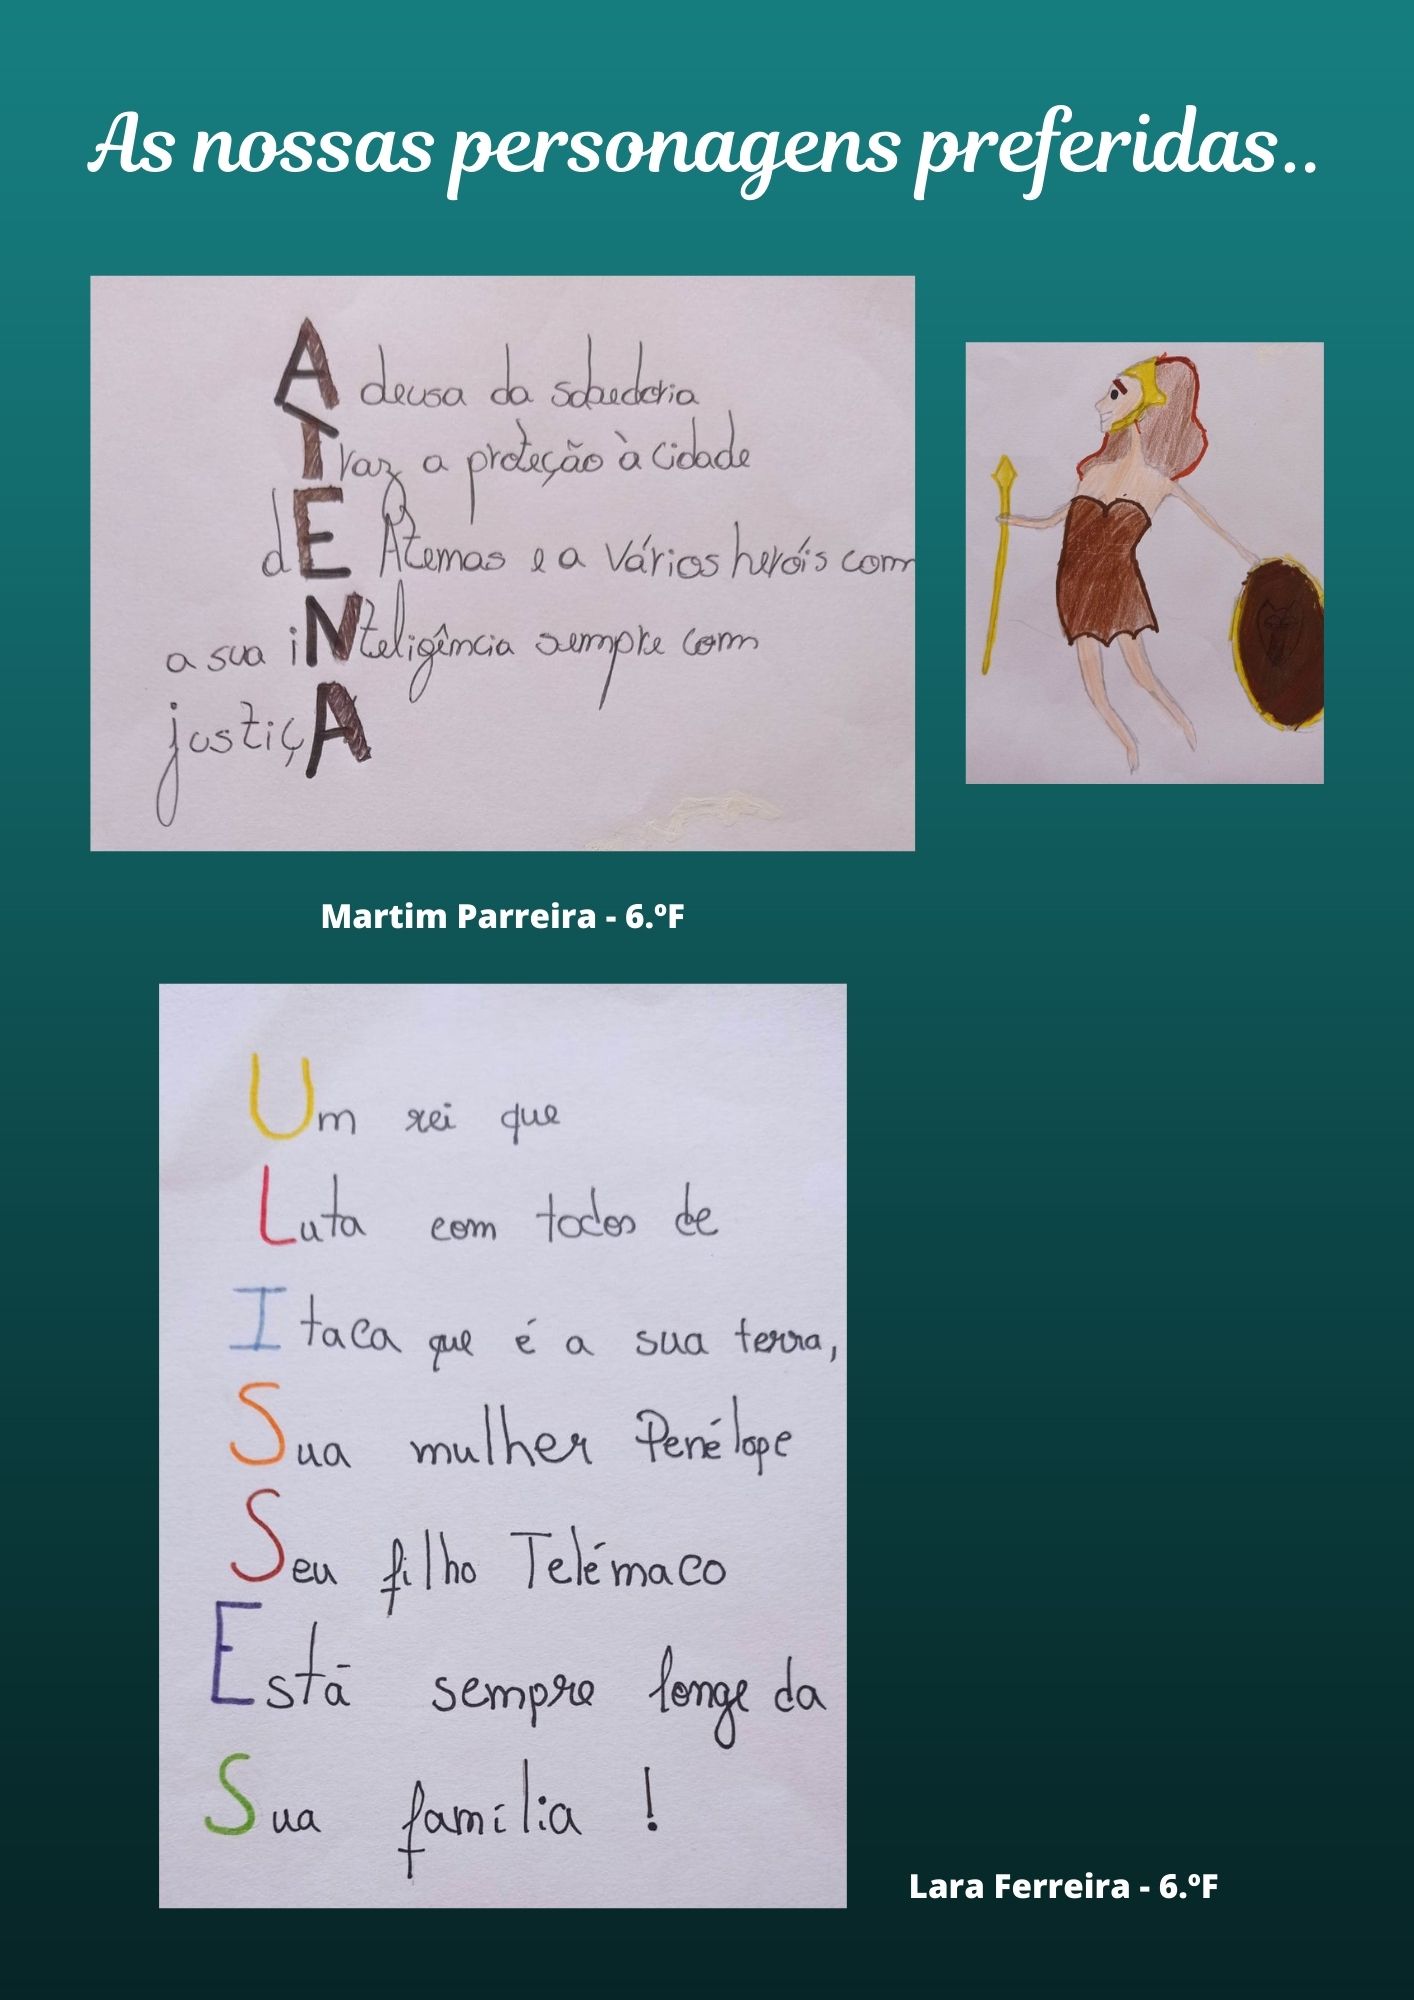 As nossas personagens preferidas..
A deusa da sabedoria
Traz a proteção à cidade
dE Atenas e a vários heróis com
a sua iNteligência sempre com
justiçA
Martim Parreira - 6.ºF
Um rei que
Luta com todos de
Itaca que é a sua terra,
Sua mulher Penélope
Seu filho Telémaco
Está sempre longe da
Sua família !
Lara Ferreira - 6.ºF